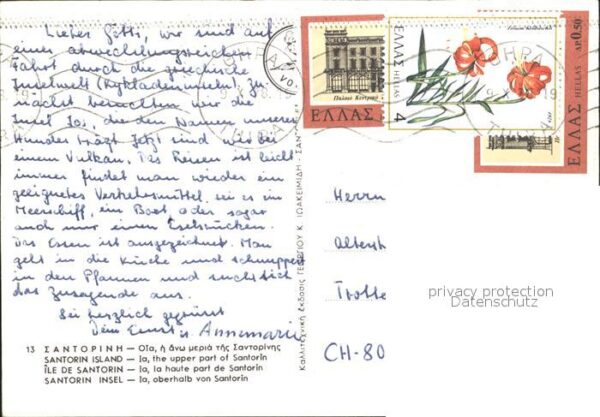 Lieber Götti, wir sind auf
einer abwechslungsreichen
Fahrt durch die griechische
Inselwelt (Kykladeninseln). Zu-
nächst besuchten wir die
Insel Ios, die den Namen unseres
Hundes trägt. Jetzt sind wir bei
einem Vulkan. Das Reisen ist leicht
immer findet man wieder ein
geeignetes Verkehrsmittel, sei es ein
Meerschiff, ein Boot oder sogar
auch nur einen Eselsrücken.
Das Essen ist ausgezeichnet. Man
geht in die Küche und schnuppert
in den Pfannen und sucht sich
das Zusagende aus.
Sei herzlich gegrüsst
Dein Ernst u. Annemarie
13 ΣΑΝΤΟΡΙΝΗ — Οἴα, ἡ ἄνω μεριά τῆς Σαντορίνης
SANTORIN ISLAND — Ia, the upper part of Santorin
ÎLE DE SANTORIN — Ia, la haute part de Santorin
SANTORIN INSEL — Ia, oberhalb von Santorin
Καλλιτεχνική ἔκδοσις ΓΕΩΡΓΙΟΥ Κ. ΙΩΑΚΕΙΜΙΔΗ - ΣΑΝ
ΕΛΛΑΣ
ΕΛΛΑΣ HELLAS
4
ΔΡ. 0.50
ΕΛΛΑΣ HELLAS
Herrn
Altersh
Trotte
CH-80
privacy protection
Datenschutz